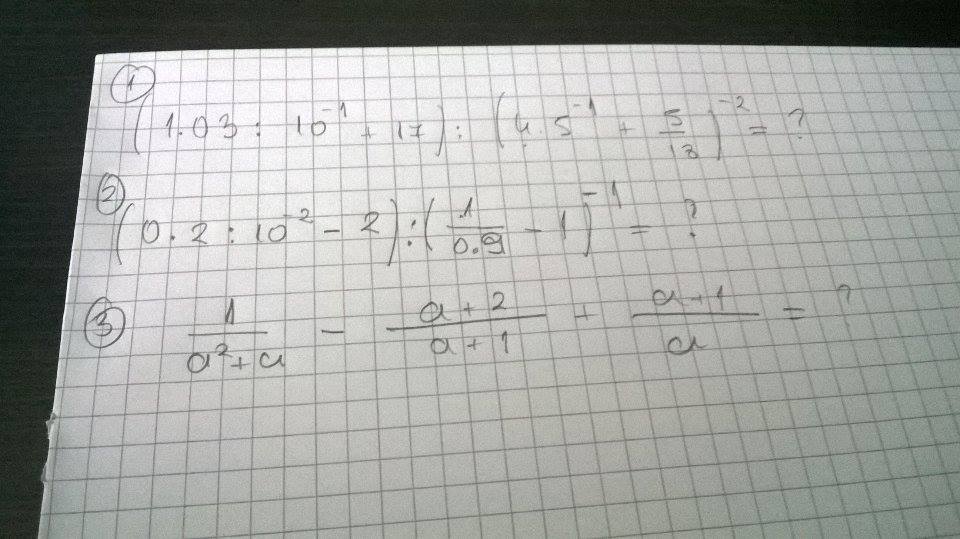 ①
(1.03 : 10⁻¹ + 17) : (4.5⁻¹ + 5/13)⁻² = ?
②
(0.2 : 10⁻² - 2) : (1/0.9 - 1)⁻¹ = ?
③ 1/(a²+a) - (a+2)/(a+1) + (a+1)/a = ?